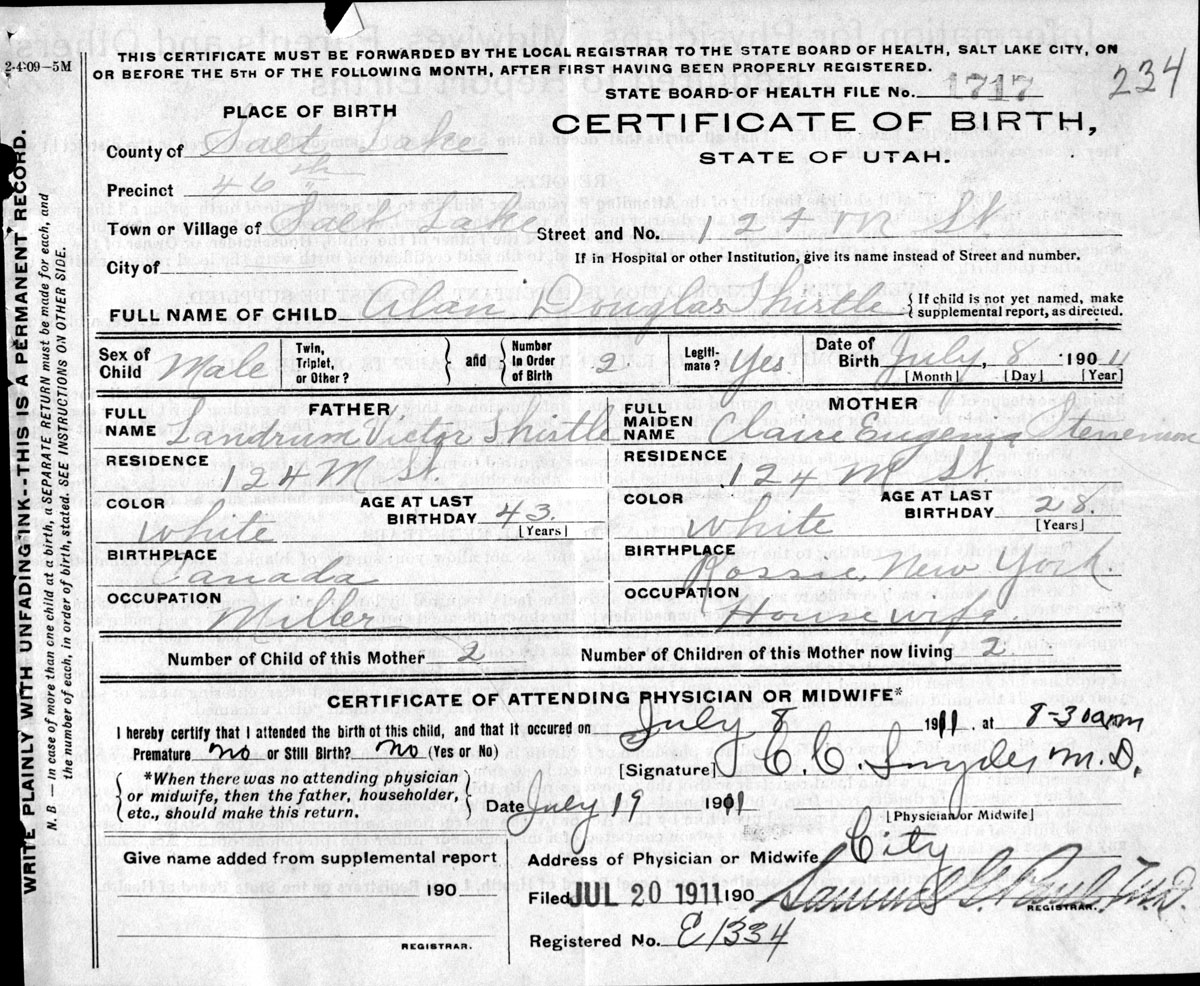 THIS CERTIFICATE MUST BE FORWARDED BY THE LOCAL REGISTRAR TO THE STATE BOARD OF HEALTH, SALT LAKE CITY, ON
2-4-09-5M
OR BEFORE THE 5TH OF THE FOLLOWING MONTH, AFTER FIRST HAVING BEEN PROPERLY REGISTERED.
STATE BOARD OF HEALTH FILE No. 1717
234
PLACE OF BIRTH
CERTIFICATE OF BIRTH,
STATE OF UTAH.
County of Salt Lake
Precinct 46th
Town or Village of Salt Lake Street and No. 124 M St.
City of If in Hospital or other Institution, give its name instead of Street and number.
FULL NAME OF CHILD Alan Douglas Shirtle { If child is not yet named, make supplemental report, as directed.
Sex of Child Male Twin, Triplet, or Other? } and { Number in Order of Birth 2 Legitimate? Yes Date of Birth July, 8 1904 11
[Month] [Day] [Year]
FATHER MOTHER
FULL NAME Landrum Victor Shirtle FULL MAIDEN NAME Claire Eugenia
RESIDENCE 124 M St. RESIDENCE 124 M St.
COLOR White AGE AT LAST BIRTHDAY 43 [Years] COLOR White AGE AT LAST BIRTHDAY 28. [Years]
BIRTHPLACE Canada BIRTHPLACE Rossie, New York
OCCUPATION Miller OCCUPATION House wife.
Number of Child of this Mother 2 Number of Children of this Mother now living 2
CERTIFICATE OF ATTENDING PHYSICIAN OR MIDWIFE*
I hereby certify that I attended the birth of this child, and that it occured on July 8 1911. at 8-30 am
Premature no or Still Birth? no (Yes or No)
[Signature] C. C. Snyder M.D.
{ *When there was no attending physician
or midwife, then the father, householder,
etc., should make this return. }
Date July 19 1911
[Physician or Midwife]
Give name added from supplemental report
Address of Physician or Midwife City
190
Filed JUL 20 1911 190 Samuel G. Paul, M.D.
REGISTRAR.
REGISTRAR.
Registered No. E1334
WRITE PLAINLY WITH UNFADING INK--THIS IS A PERMANENT RECORD.
N. B — In case of more than one child at a birth, a SEPARATE RETURN must be made for each, and
the number of each, in order of birth, stated. SEE INSTRUCTIONS ON OTHER SIDE.